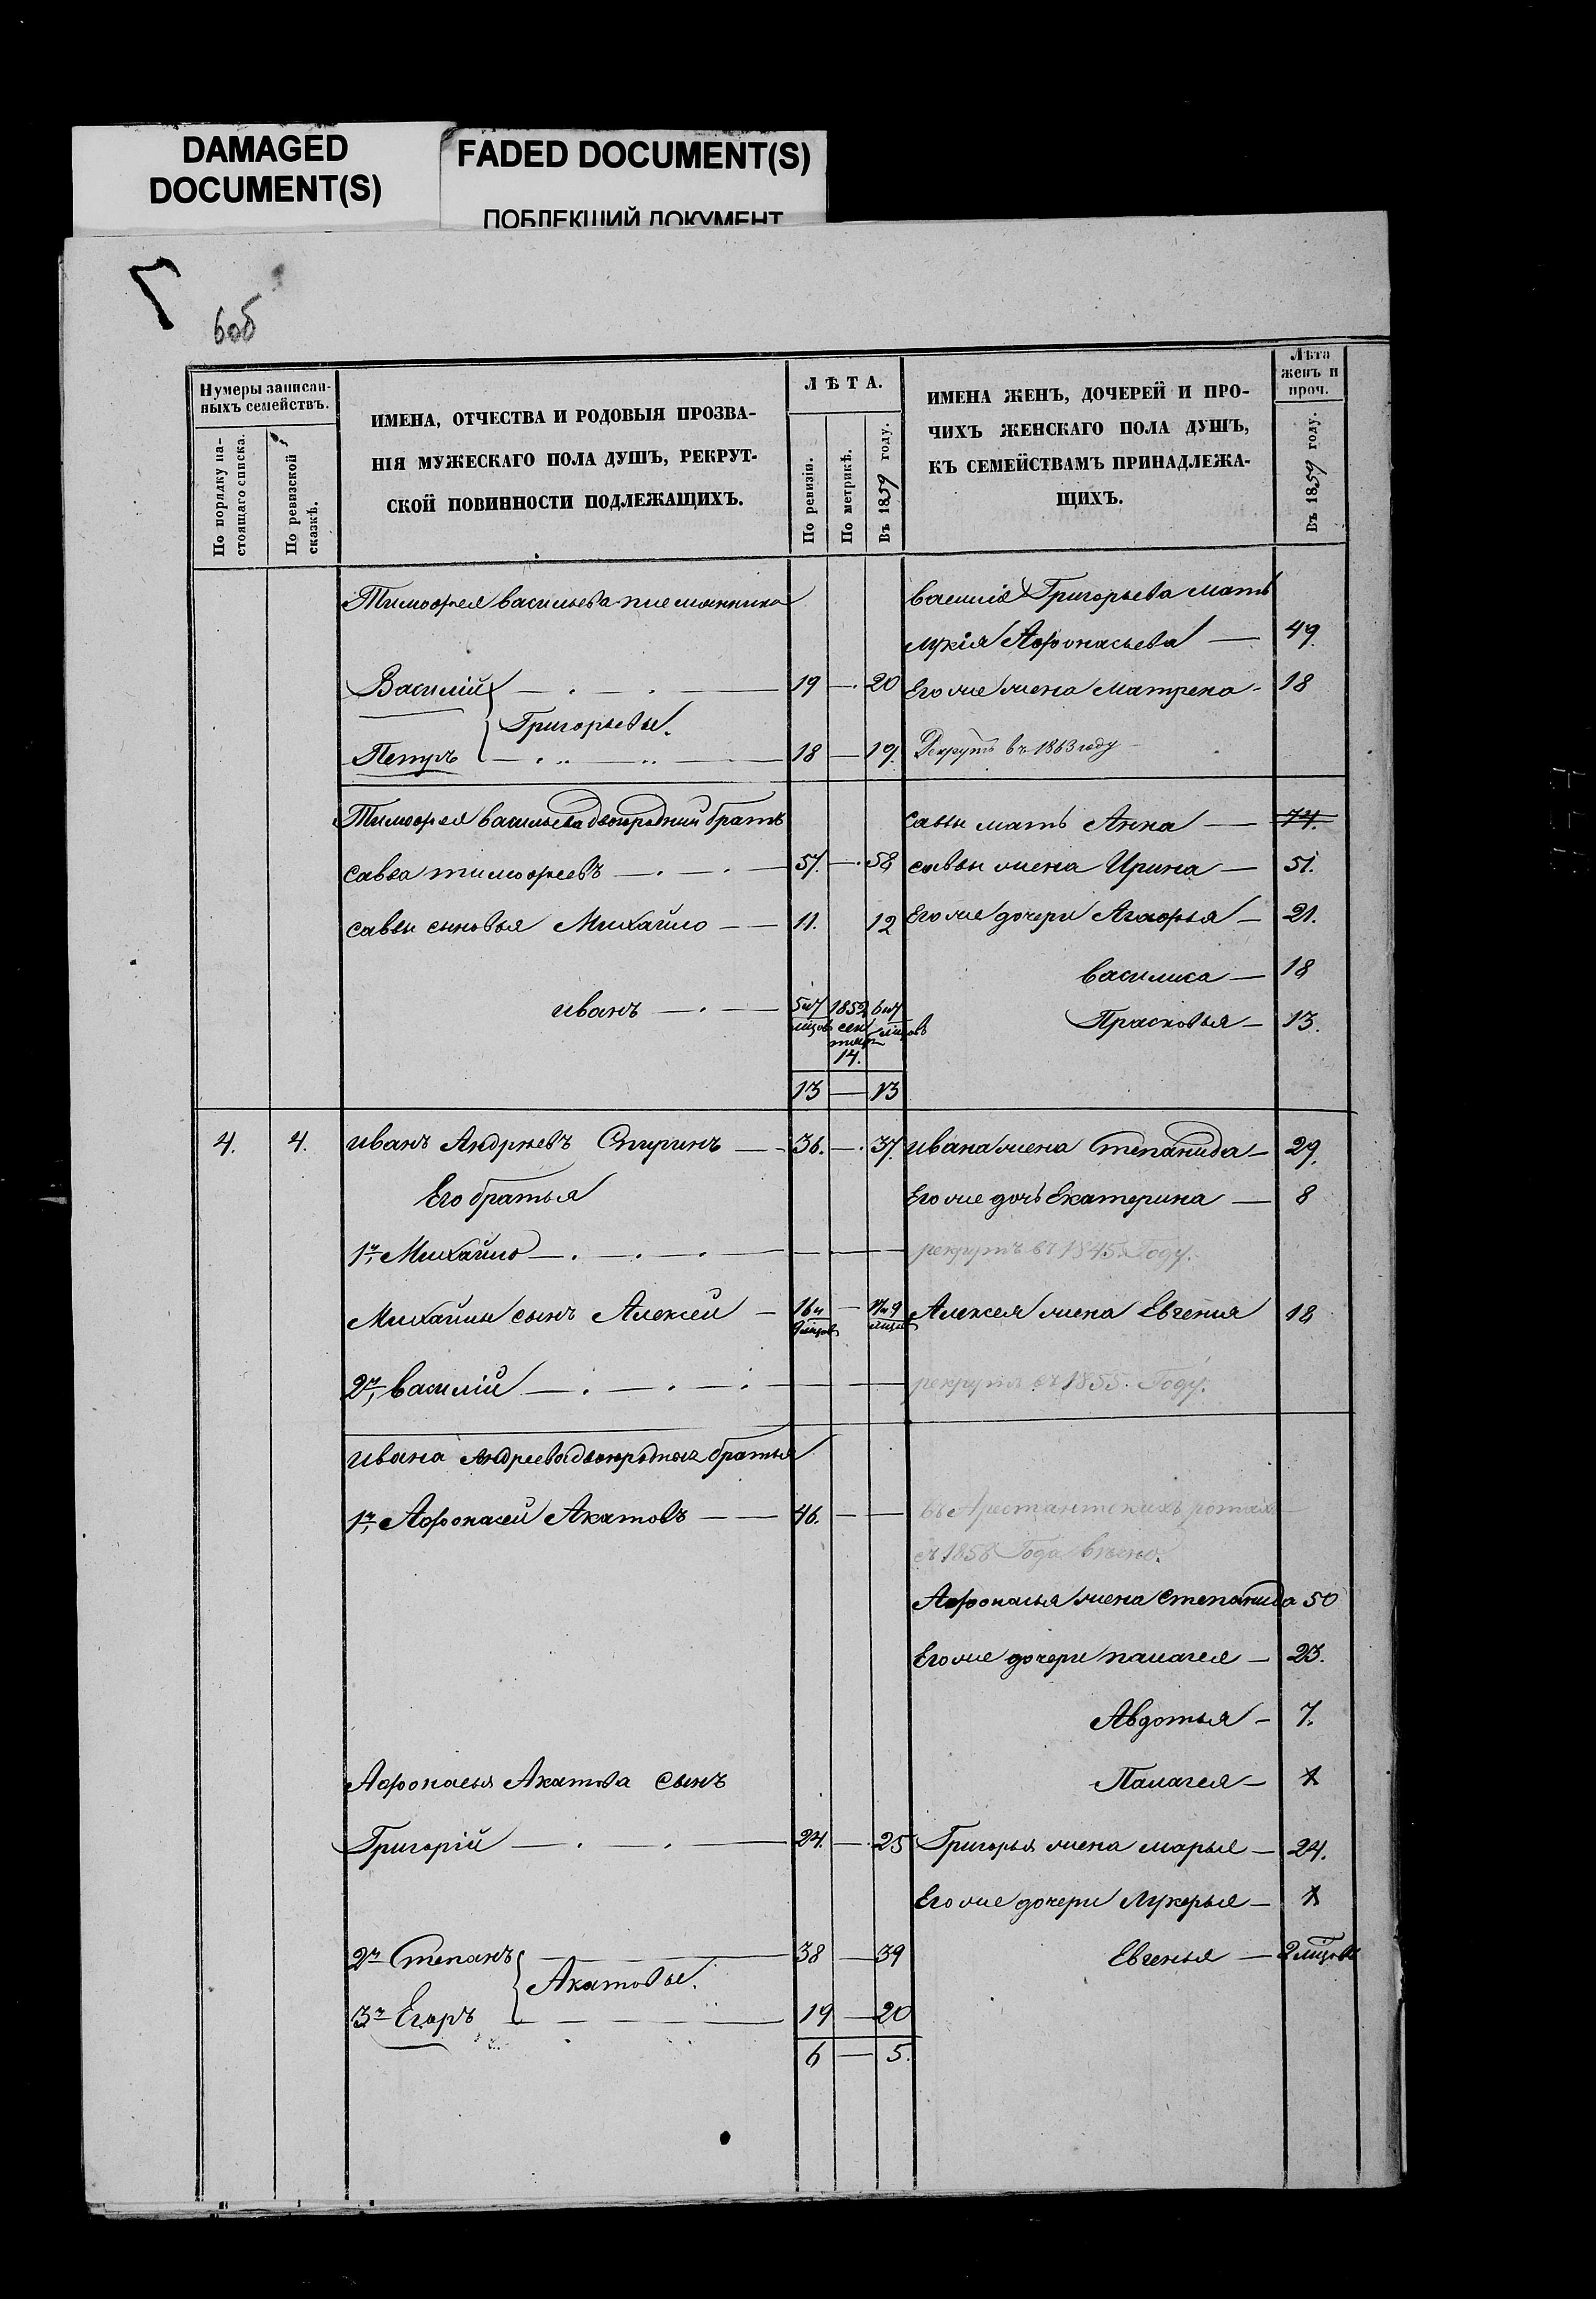 DAMAGED
DOCUMENT(S)
FADED DOCUMENT(S)
ПОБЛЕКШИЙ ДОКУМЕНТ
7
6об
Нумеры записан-
ныхъ семействъ.
По порядку на-
стоящаго списка.
По ревизской
сказкѣ.
ИМЕНА, ОТЧЕСТВА И РОДОВЫЯ ПРОЗВА-
НІЯ МУЖЕСКАГО ПОЛА ДУШЪ, РЕКРУТ-
СКОЙ ПОВИННОСТИ ПОДЛЕЖАЩИХЪ.
ЛѢТА.
По ревизіи.
По метрикѣ.
Въ 1859 году.
ИМЕНА ЖЕНЪ, ДОЧЕРЕЙ И ПРО-
ЧИХЪ ЖЕНСКАГО ПОЛА ДУШЪ,
КЪ СЕМЕЙСТВАМЪ ПРИНАДЛЕЖА-
ЩИХЪ.
Лѣта
женъ и
проч.
Въ 1859 году.
Тимофея васильева племянники
василія Григорьева мать
лукія Афонасьева — 49.
Василій — 19 — 20 Его же жена Матрена - 18
Григорьевы.
Петръ — 18 — 19. Рекрутъ въ 1863 году
Тимофея васильева двоюродний братъ савы мать Анна — 74.
савва тимофеевъ — 57. — 58 саввы жена Ирина — 51.
саввы сыновья Михайло — 11. 12 Его же дочери Агафья — 21.
василиса — 18
иванъ — 5и7 мцовъ 1852 сен тяб 14. 6и7 мцовъ Прасковья — 13.
13 — 13
4. 4. иванъ Андреевъ Спиринъ — 36. — 37. ивана жена Степанида — 29.
Его братья Его же дочь Екатерина — 8
1й, Михайло — рекрутъ въ 1845. Году.
Михайлы сынъ Алексей — 16и 9мцов — 17и9 мцов Алексея жена Евгения 18
2й, василій — рекрутъ въ 1855. Году.
ивана Андреева двоюродныя братья
1й, Афонасей Акатовъ — 46. — въ Арестантскихъ ротахъ
съ 1858 Года
Афонасья жена степанида 50
Его же дочери палагея — 23.
Авдотья — 7.
Афонасья Акатова сынъ Палагея — 1
Григорій — 24. — 25 Григорья жена марья — 24.
Его же дочери Лукерья — 1
2й Степанъ — 38 — 39 Евгенья — 2 мцовъ
Акатовы.
3й Егоръ — 19 — 20
6 — 5.